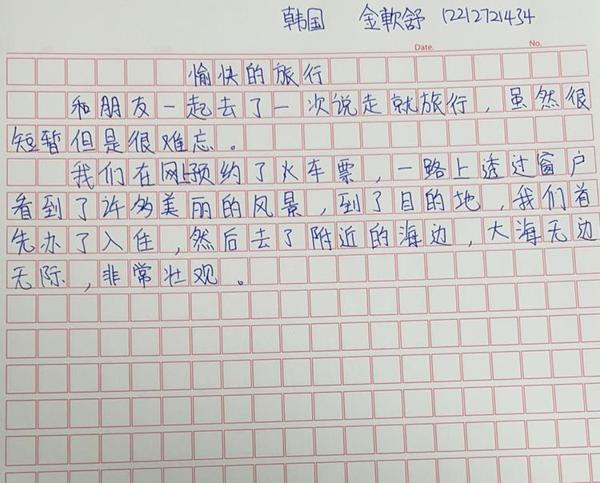 韩国 金軟舒 12212721434
Date. No.
愉快的旅行
和朋友一起去了一次说走就旅行，虽然很
短暂但是很难忘。
我们在网上预约了火车票，一路上透过窗户
看到了许多美丽的风景，到了目的地，我们首
先办了入住，然后去了附近的海边，大海无边
无际，非常壮观。